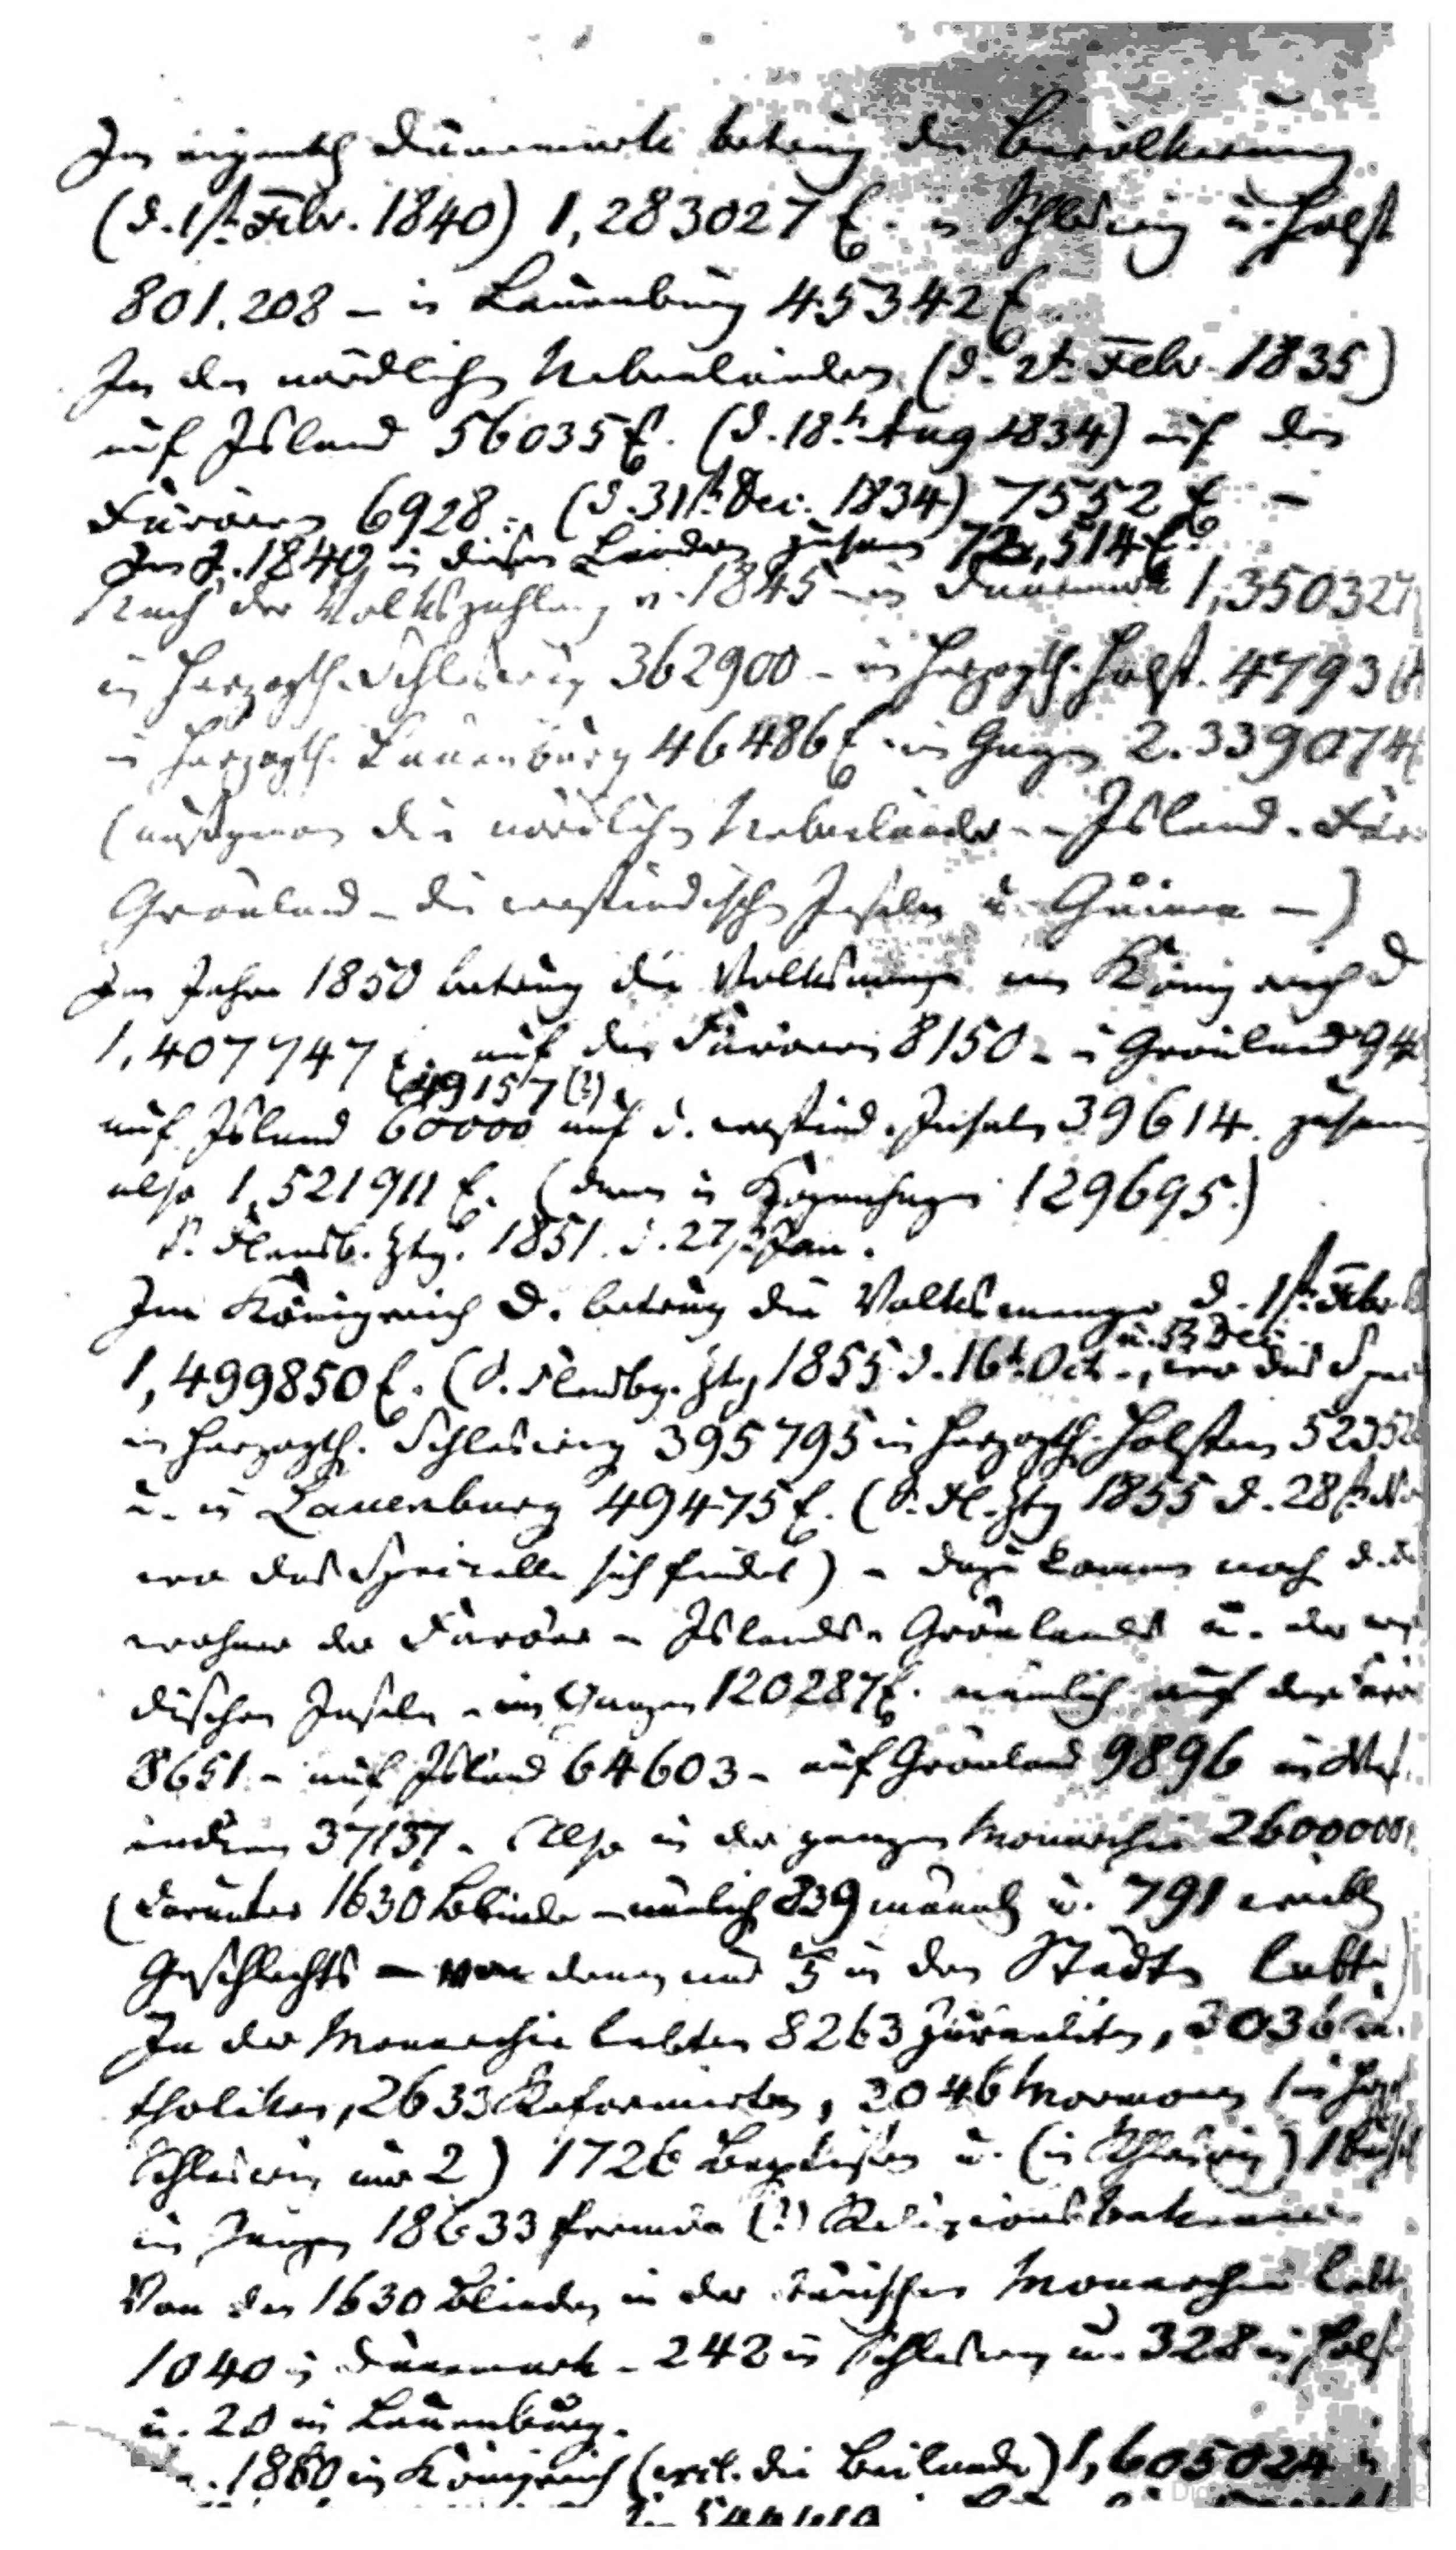 Im eigentl Dänemark betrug die Bevölkerung
(d. 1st. Febr. 1840) 1,283027 E. in Schleswig u. Holst
801,208 – in Lauenburg 45342 E.
In den nördlichen Nebenländern (d. 2t. Febr. 1835)
auf Island 56035 E. (d. 18t. Aug 1834) auf den
Färöern 6928 – (d. 31st. Dec. 1834) 7552 E –
Im J. 1840 in diesen Ländern zusam 72,514 E.
Nach der Volkszählung v. 1845 – in Dänemark 1,350327
in Herzogth. Schleswig 362900 – in Herzogth. Holst. 47936
in Herzogth. Lauenburg 46486 E – im Ganzen 2.339074
(ausgenom die nördlichen Nebenländer – Island – Fär
Grönland – die westindischen Inseln u. Guinea –)
Im Jahre 1850 betrug die Volksmenge im Königreich D
1,407747 E. auf den Färöern 8150 – in Grönland 94
(49157 (?)
auf Island 60000 auf d. westind. Inseln 39614. zusam
also 1,521911 E. (davon in Kopenhagen 129695.)
S. Flensb. Ztg. 1851. d. 27st. Jan.
Im Königreich D. betrug die Volksmenge d. 1st. Febr.
u. Dec.
1,499850 E. (S. Flensbg. Ztg 1855 d. 16t. Oct. –, wo das Spec
in Herzogth. Schleswig 395795 in Herzogth. Holstein 52352
u. in Lauenburg 49475 E. (S. Fl. Ztg 1855 d. 28st.
wo das Specielle sich findet) – dazu kommen noch d.
wohner der Färöer – Islands – Grönlands u. der west
dischen Inseln – im Ganzen 120287 E. nämlich auf den Färö
8651 – auf Island 64603 – auf Grönland 9896 in West
indien 37137 – Also in der ganzen Monarchie 2600000
(darunter 1630 Blinde – nämlich 839 männl u. 791 weibl
Geschlechts – von denen nur 1/5 in den Städten lebte)
In der Monarchie lebten 8263 Israeliten, 3036 Ka
tholiken, 2633 Reformirte, 2046 Mormonen (in Herz
Schleswig nur 2) 1726 Baptisten u. (in Schleswig) 1
im Ganzen 18633 fremde (?) Religionsbekenner
Von den 1630 Blinden in der dänischen Monarchie lebt
1040 in Dänemark – 242 in Schleswig u. 328 in Holst
u. 20 in Lauenburg.
1860 in Königreich (excl. die Beilande) 1,605024 in